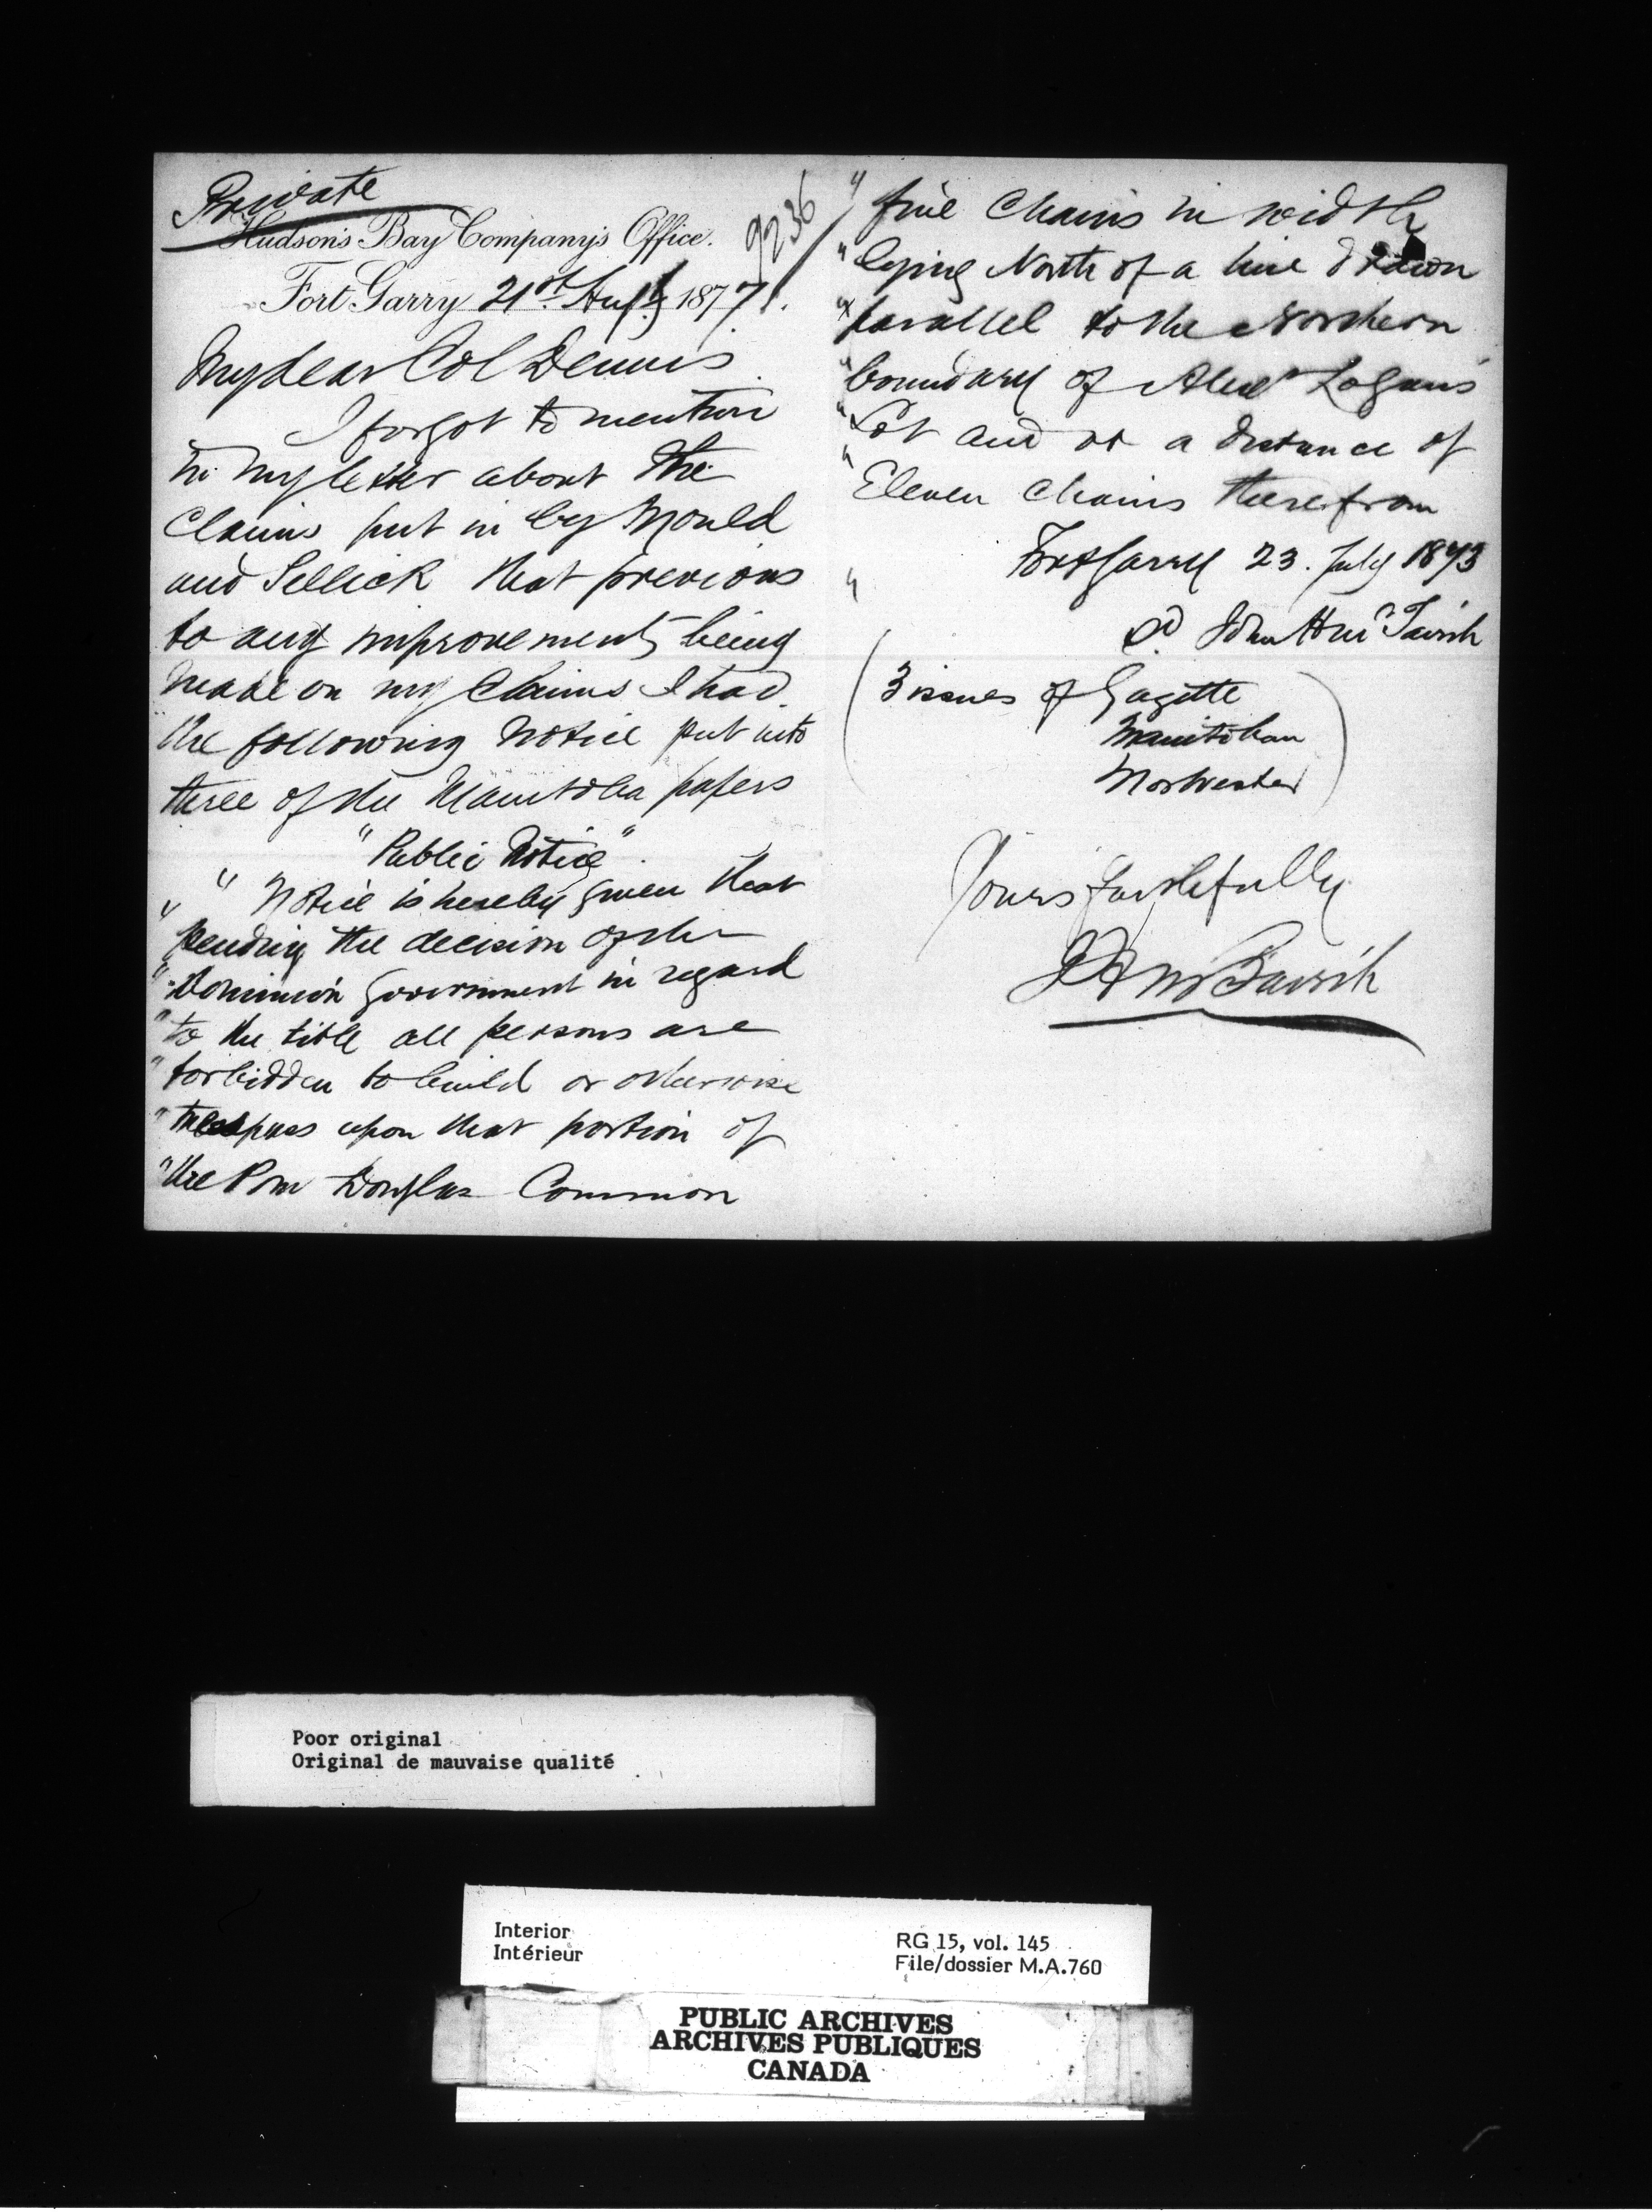 Private
Hudson's Bay Company's Office.
9236
Fort Garry 21st Augt 1877.
My dear Col Dennis.
I forgot to mention
in my letter about the
Claims put in by Mould
and Sellick that previous
to any improvements being
made on my Claims I had
the following Notice put into
three of the Manitoba papers
"Public Notice".
" " Notice is hereby given that
pending the decision of the
" Dominion Government in regard
" to the title all persons are
" forbidden to build or otherwise
" trespass upon that portion of
" the Poin Douglas Common
" five Chains in width
" lying North of a line drawn
" parallel to the Northern
" boundary of Alexr Logans
" Lot and at a distance of
" Eleven Chains therefrom
" Fort Garry 23. July 1873
sd. John H McTavish
(3 issues of Gazette
Manitoban
Norwester)
Yours faithfully
J H McTavish
Poor original
Original de mauvaise qualité
Interior
Intérieur
RG 15, vol. 145
File/dossier M.A.760
PUBLIC ARCHIVES
ARCHIVES PUBLIQUES
CANADA